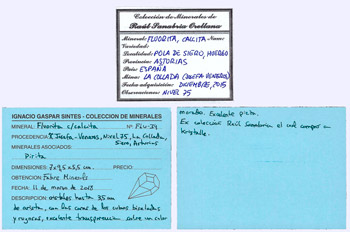 Colección de Minerales de
Raúl Sanabria Orellana
Mineral: FLUORITA, CALCITA Nº:
Variedad:
Localidad: POLA DE SIERO, HUERGO
Provincia: ASTURIAS
País: ESPAÑA
Mina: LA COLLADA (JOSEFA VENEROS)
Fecha adquisición: DICIEMBRE, 2015
Observaciones: NIVEL 75
IGNACIO GASPAR SINTES - COLECCION DE MINERALES
MINERAL: Fluorita c/calcita Nº
PROCEDENCIA: Josefa-Veneros, Nivel 75, La Collada,
Siero, Asturias
MINERALES ASOCIADOS:
Pirita
DIMENSIONES: 7x9,5x5,5 cm PRECIO:
OBTENCION: Fabre Minerals
FECHA: 11 de marzo de 2018
DESCRIPCION: cristales hasta 3,5 cm
de arista, con las caras de los cubos biseladas
y rugosas, excelente transparencia, sobre un color
morado. Excelente pieza.
Ex colección Raúl Sanabria el cual compró en
kristalle.